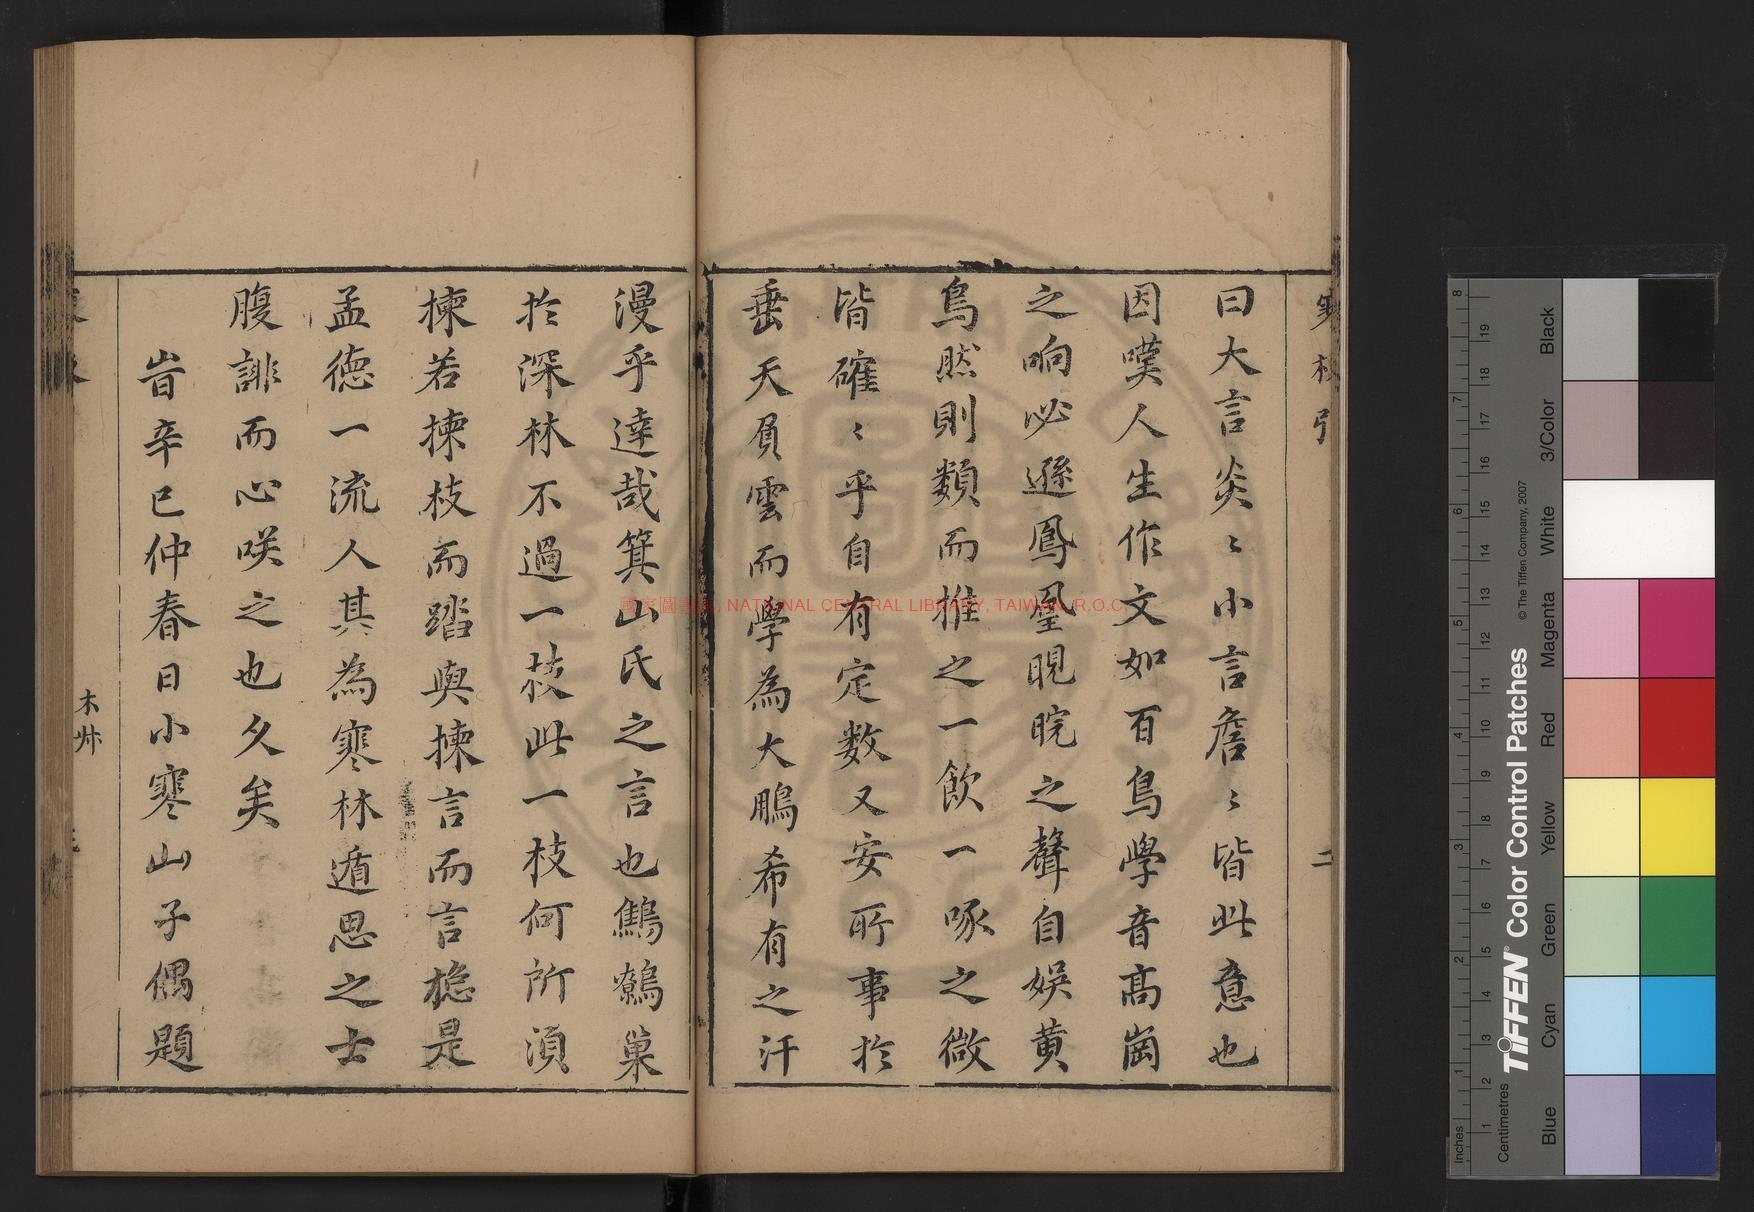 曰大言炎〻小言詹〻皆此意也
因嘆人生作文如百鳥學音高崗
之响必遜鳳凰睍睆之聲自娛黃
鳥然則類而推之一飲一啄之微
皆確〻乎自有定數又安所事於
垂天負雲而學為大鵬希有之汗
漫乎達哉箕山氏之言也鷦鷯巢
於深林不過一枝此一枝何所須
揀若揀枝而踏與揀言而言摠是
孟德一流人其為寒林遁思之士
腹誹而心咲之也久矣
旹辛巳仲春日小寒山子偶題
寒枝引
二
木艸
國家圖書館, NATIONAL CENTRAL LIBRARY, TAIWAN (R.O.C.)
Inches
Centimetres
TIFFEN® Color Control Patches
© The Tiffen Company, 2007
Blue
Cyan
Green
Yellow
Red
Magenta
White
3/Color
Black